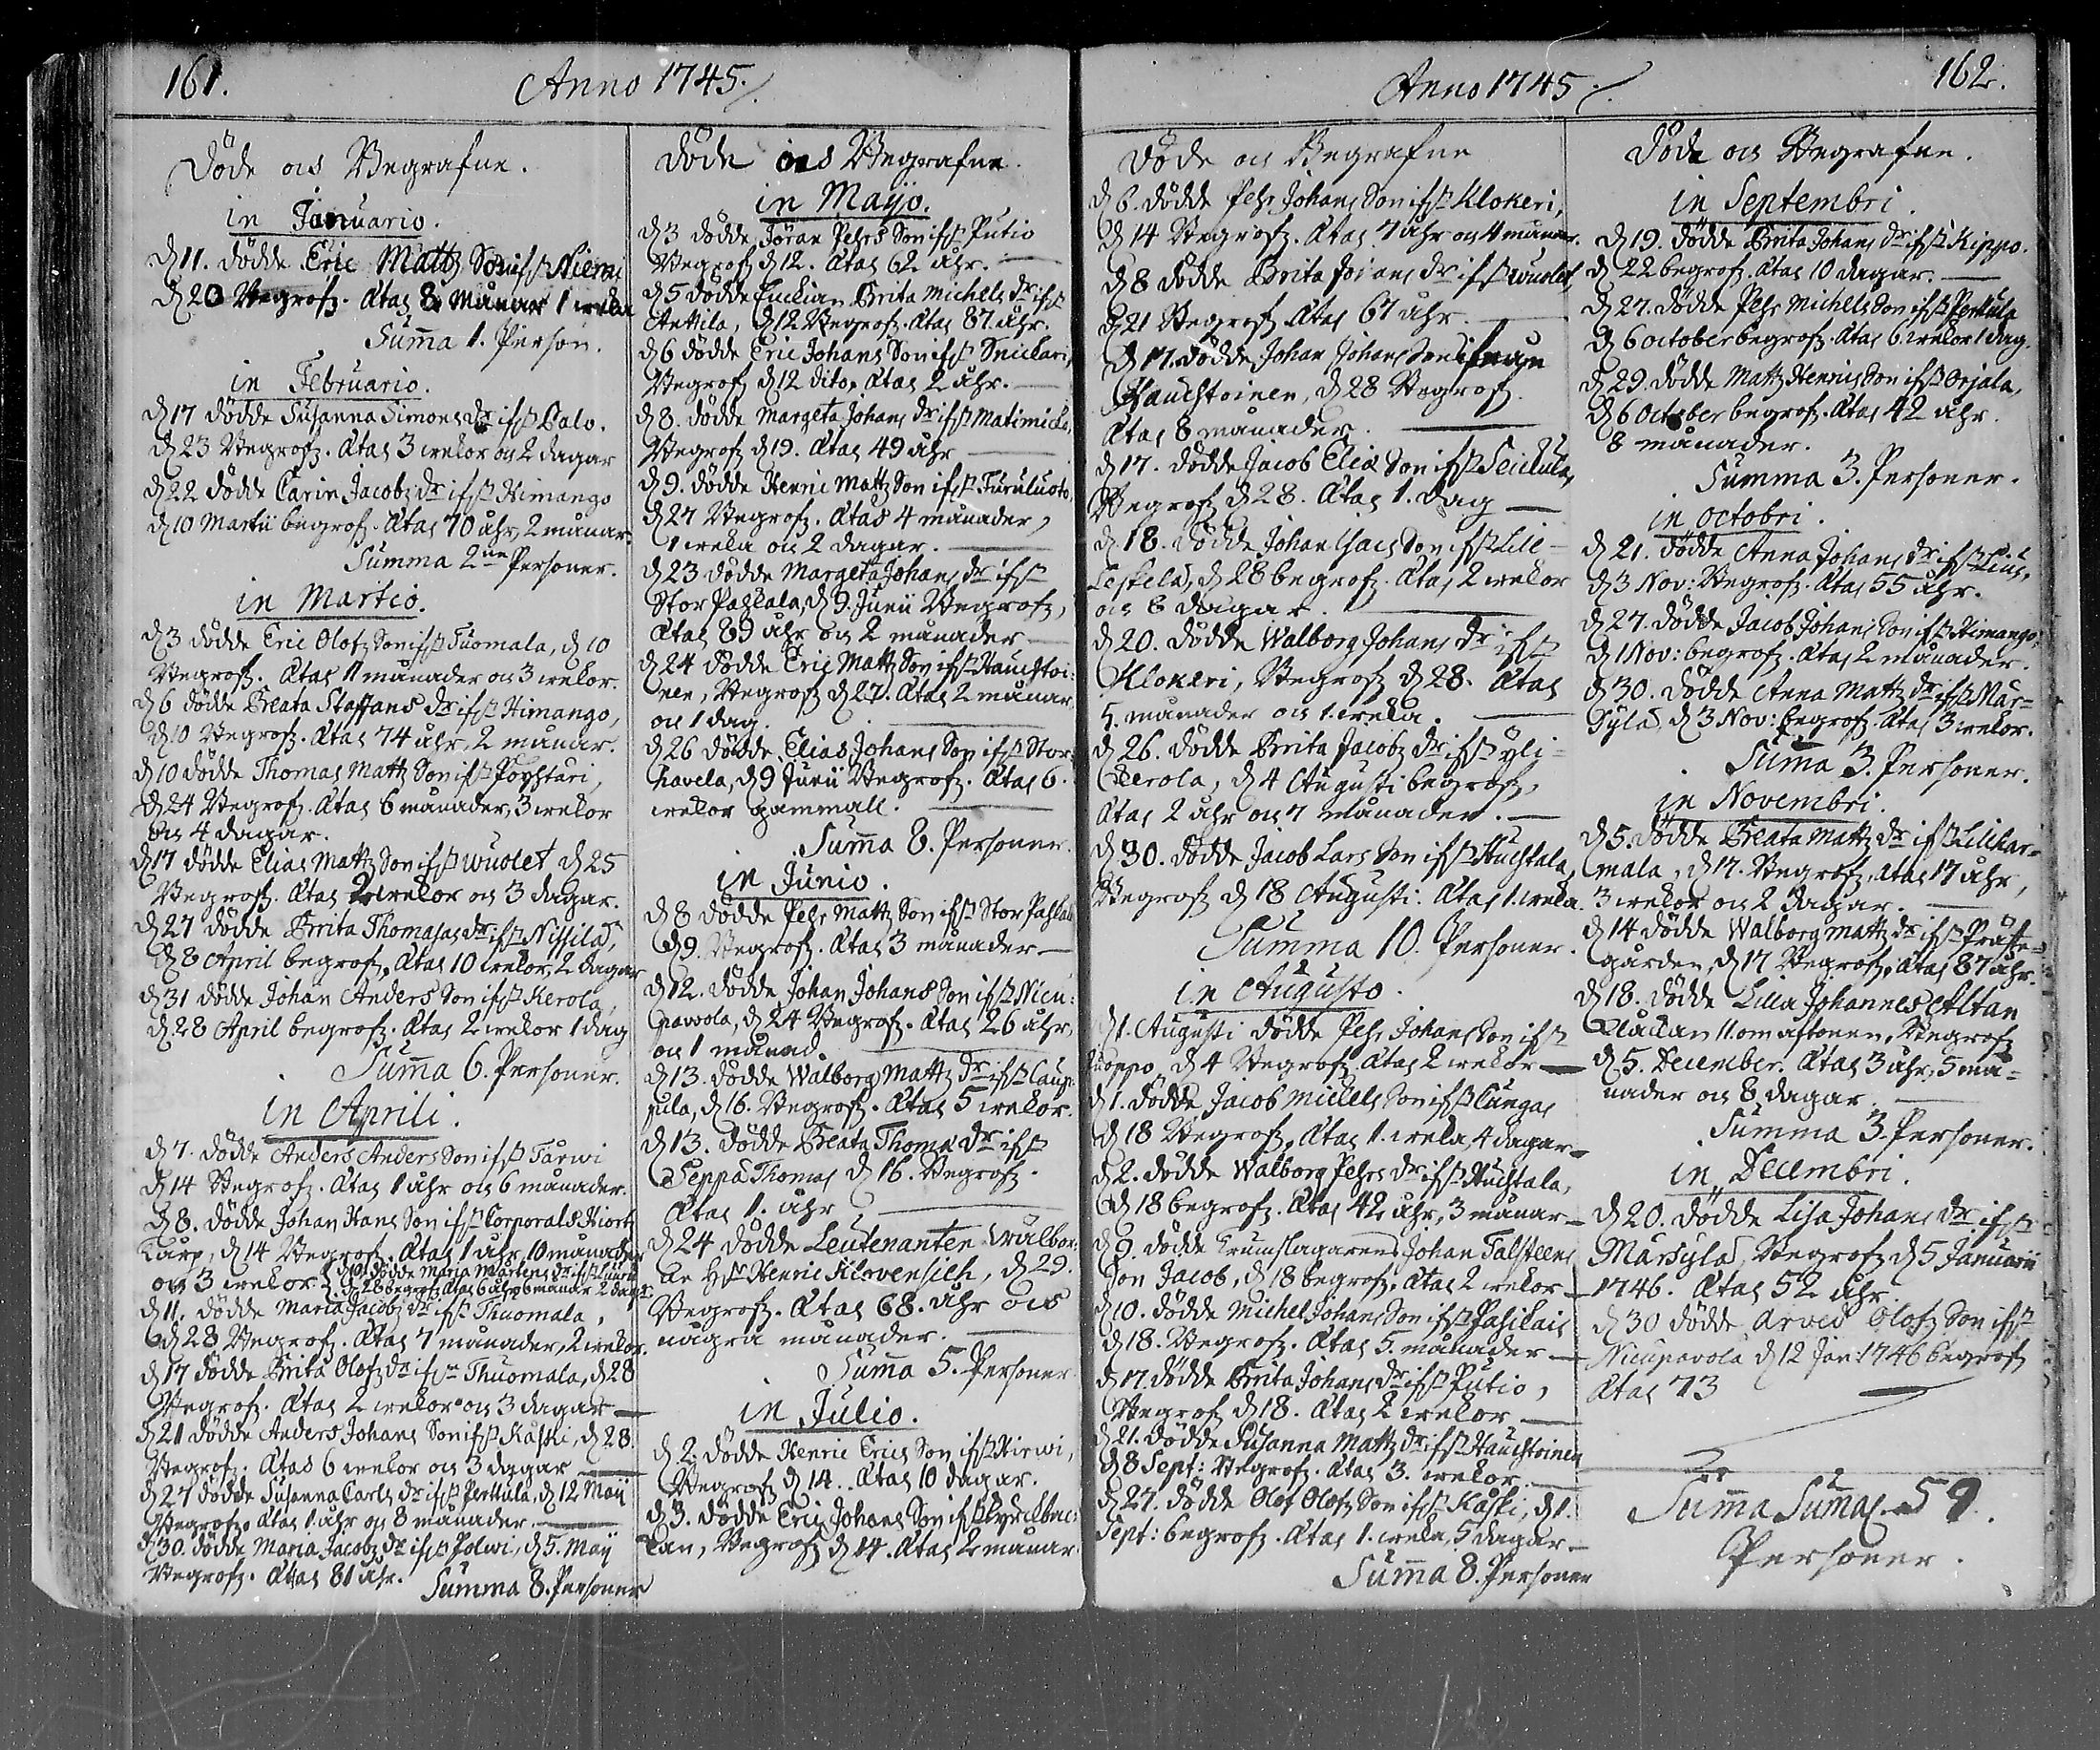 161.
Anno 1745./.
Döde och Begrafne.
in Januario.
d 11. dödde Eric Mattz Son ifr Niemi
d 20 Begrofz. Ætas 8 Månar 1 weka
Sum̃a 1. Person.
in Februario.
d 17 dödde Susanna Simons dr ifr Palo.
d 23 Begrofz. Ætas 3 wekor och 2 dagar
d 22 dödde Carin Jacobz dr ifr Himango
d 10 Martii begrofz. Ætas 70 åhr, 2 månar.
Summa 2ne Personer.
in Martio.
d 3 dödde Eric Olofz Son ifr Tuomala, d 10
Begrofz. Ætas 11 månader och 3 wekor.
d 6 dödde Beata Staffans dr ifr Himango,
d 10 Begrofz. Ætas 74 åhr, 2 månar.
d 10 dödde Thomas Mattz Son ifr Pöyhtäri,
d 24 Begrofz. Ætas 6 månader, 3 wekor
och 4 dagar.
d 17 dödde Elias Mattz Son ifr wuolet d 25
Begrofz. Ætas 2 wekor och 3 dagar.
d 27 dödde Brita Thomasas dr ifr Nissilä,
d 8 April begrofz. Ætas 10 wekor, 2 dagar
d 31 dödde Johan Anders Son ifr Kerola,
d 28 April begrofz. Ætas 2 wekor 1 dag
Sum̃a 6. Personer.
in Aprili.
d 7. dödde Anders Anders Son ifr Järwi
d 14 Begrofz. Ætas 1 åhr och 6 månader.
d 8. dödde Johan Hans Son ifr Corporals Hiort
Torp, d 14 Begrofz. Ætas 1 åhr, 10 månader
och 3 wekor. d 10 dödde Maria Mårtens dr ifr
d 28 begrofz Ætas 6 åhr 6 månar 2 dagar
d 11. dödde Maria Jacobz dr ifr Thuomala,
d 28 Begrofz. Ætas 7 månader, 2 wekor.
d 17 dödde Brita Olofz dr ifr Thuomala, d 28
Begrofz. Ætas 2 wekor och 3 dagar
d 21 dödde Anders Johans Son ifr Kåski, d 28.
Begrofz. Ætas 6 wekor och 3 dagar
d 27 dödde Susanna Carls dr ifr Perttula, d 12 Maij
Begrofz. Ætas 1 åhr och 8 månader
d 30. dödde Maria Jacobz dr ifr Polwi, d 5. Maij
Begrofz. Ætas 81 åhr.
Summa 8. Personer
Döde och Begrafne.
in Maijo.
d 3 dödde Jöran Pehrs Son ifr Putio
Begrofz d 12. Ætas 62 åhr.
d 5 dödde Enkian Brita Michels dr ifr
Anttila, d 12 Begrofz. Ætas 87. åhr.
d 6 dödde Eric Johans Son ifr Snickari,
Begrofz d 12 dito, Ætas 2 åhr.
d 8. dödde Margeta Johans dr ifr Matimicka,
Begrofz d 19. Ætas 49 åhr
d 9. dödde Henric Mattz Son ifr Turuluoto,
d 27 Begrofz. Ætas 4 månader,
1 weka och 2 dagar.
d 23 dödde Margeta Johans dr ifr
Stor Pahkala, d 9. Junii Begrofz,
Ætas 89 åhr och 2 månader
d 24 dödde Eric Mattz Son ifr Hauchtoi-
nen, Begrofz d 27. Ætas 2 månar
och 1 dag.
d 26 dödde Elias Johans Son ifr Stor-
havela, d 9 Junii Begrofz. Ætas 6.
wekor gammall.
Sum̃a 8. Personer.
in Junio.
d 8 dödde Pehr Mattz Son ifr Stor Pahkala
d 9. Begrofz. Ætas 3 månader
d 12. dödde Johan Johans Son ifr Nicu-
pavola, d 24 Begrofz. Ætas 26 åhr,
och 1 månad.
d 13. dödde Walborg Mattz dr ifr Caup-
pula, d 16. Begrofz. Ætas 5 wekor.
d 13. dödde Beata Thomæ dr ifr
Seppä Thomas d 16. Begrofz.
Ætas 1. åhr
d 24 dödde Leutenanten Wälbor:
ne Hr Henric , d 29.
Begrofz. Ætas 68. åhr och
några månader.
Suma 5. Personer
in Julio.
d 2. dödde Henric Erics Son ifr Hirwi,
Begrofz d 14. Ætas 10 dagar.
d 3. dödde Eric Johans Son ifr
kan, Begrofz d 14. Ætas 2 månar
Anno 1745./.
162.
Döde och Begrafne
d 6. dödde Pehr Johans Son ifr Klokeri,
d 14 Begrofz. Ætas 7 åhr och 4 månar.
d 8 dödde Brita Johans dr ifr wuolet,
d 21 Begrofz Ætas 67 åhr
d 17. dödde Johan Johans Son ifrån
Hauchtoinen, d 28 Begrofz.
Ætas 8 månader.
d 17. dödde Jacob Eliæ Son ifr Seickula,
Begrofz d 28. Ætas 1. dag
d 18. dödde Johan Isacs Son ifr Lill-
Leskelä, d 28 begrofz. Ætas 2 wekor
och 6 dagar.
d 20. dödde Walborg Johans dr ifr
Klokeri, Begrofz d 28. Ætas
5. månader och 1. weka.
d 26. dödde Brita Jacobz dr ifr yli-
Kerola, d 4 Augusti begrofz,
Ætas 2 åhr och 7 månader.
d 30. dödde Jacob Lars Son ifr Huchtala,
Begrofz d 18 Augusti. Ætas 1. weka
Summa 10. Personer.
in Augusto.
d 1. Augusti dödde Pehr Johans Son ifr
Ruoppo, d 4 Begrofz. Ætas 2 wekor
d 1. dödde Jacob Michels Son ifr Cangas
d 18 Begrofz. Ætas 1. weka, 4 dagar
d 2. dödde Walborg Pehrs dr ifr Huchtala,
d 18 begrofz. Ætas 42 åhr, 3 månar
d 9. dödde Trumslagarens Johan Falsteens
Son Jacob, d 18 begrofz. Ætas 2 wekor
d 10. dödde Michel Johans Son ifr Pasikais
d 18. Begrofz. Ætas 5. månader
d 17. dödde Brita Johans dr ifr Putio,
Begrofz d 18. Ætas 2 wekor
d 21. dödde Susanna Mattz dr ifr Hauchtoinen
d 8 Sept: Begrofz. Ætas 3. wekor
d 27. dödde Olof Olofz Son ifr Kåski, d 1.
Sept: begrofz. Ætas 1. weka, 5 dagar
Sum̃a 8. Personer
Döde och Begrafne.
in Septembri.
d 19. dödde Brita Johans dr ifr Kippo.
d 22 begrofz. Ætas 10 dagar.
d 27. dödde Pehr Michels Son ifr Perttula
d 6 october begrofz. Ætas 6 wekor 1 dag.
d 29. dödde Mattz Henrics Son ifr Orjala,
d 6 October begrofz. Ætas 42 åhr.
8 månader.
Summa 3. Personer.
in octobri.
d 21. dödde Anna Johans dr ifr
d 3 Nov: Begrofz. Ætas 55 åhr.
d 27. dödde Jacob Johans Son ifr Himango,
d 1 Nov: begrofz. Ætas 2 månader.
d 30. dödde Anna Mattz dr ifr Mär-
sylä, d 3 Nov: begrofz. Ætas 3 wekor.
Suma 3. Personer.
in Novembri.
d 5. dödde Beata Mattz dr ifr Lillkar-
mala, d 17. Begrofz. Ætas 17 åhr,
3 wekor och 2 dagar.
d 14 dödde Walborg Mattz dr ifr Präste-
gården, d 17 Begrofz, Ætas 87 åhr.
d 18. dödde Lilla Johannes Altan
Kluckan 11. om aftonen, Begrofz
d 5. December. Ætas 3 åhr, 5 må-
nader och 8 dagar
Summa 3. Personer.
in Decembri.
d 20. dödde Lisa Johans dr ifr
Märsylä, Begrofz d 5 Januarii
1746. Ætas 52 åhr.
d 30 dödde Arved Olofz Son ifr
Nicupavola d 12 Jan: 1746 begrofz
Ætas 73
Sum̃a Sumar. 59.
Personer.